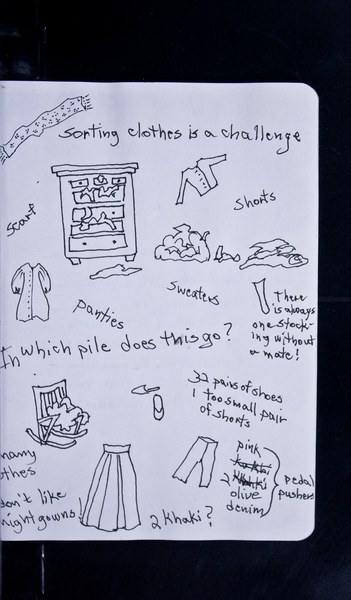 Sorting clothes is a challenge
scarf
shorts
sweaters
panties
There
is always
one stock-
ing without
a mate!
In which pile does this go?
32 pairs of shoes
1 too small pair
of shorts
many
othes
don't like
nightgowns
2 khaki?
pink
2 khaki
olive
denim
pedal
pushers